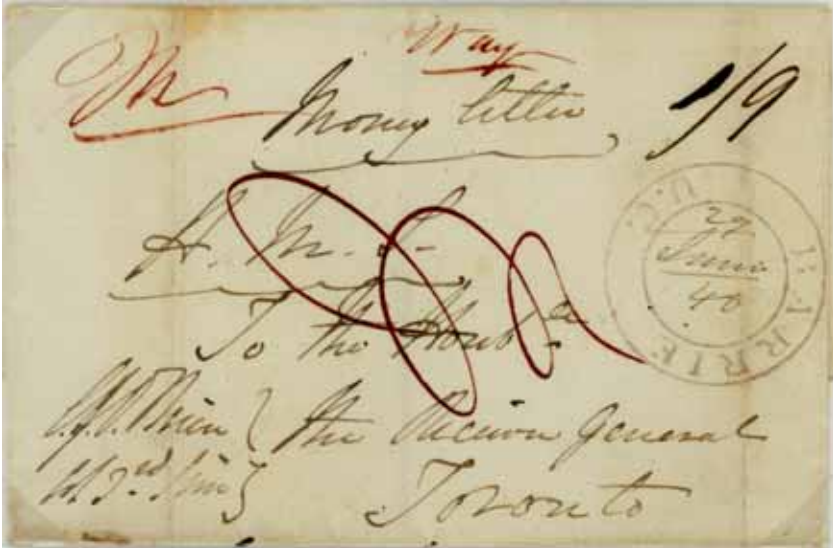 Way
Money letter 1/9
H. M. S.
BARRIE U.C.
27
June
40
To the Honble
O'Brien } the Receiver General
Toronto